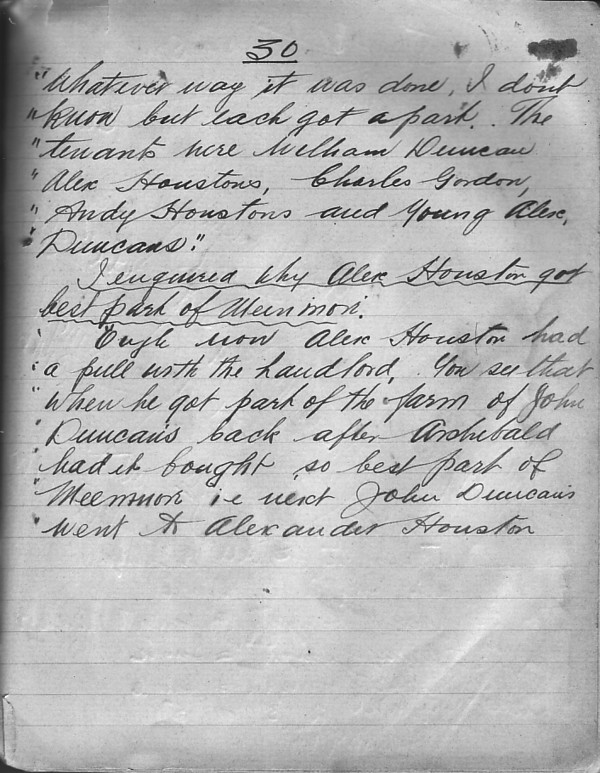 30
"Whatever way it was done, I dont
"know but each got a part. The
"tenants were William Duncan
"Alex Houstons, Charles Gordon,
"Andy Houstons and Young Alex,
"Duncans."
I enquired why Alex Houston got
best part of Meenmon.
"Ough now Alex Houston had
"a pull with the landlord. You see that
"when he got part of the farm of John
"Duncan's back after Archibald
"had it bought, so best part of
"Meenmon i.e next John Duncan's
"went to Alexander Houston